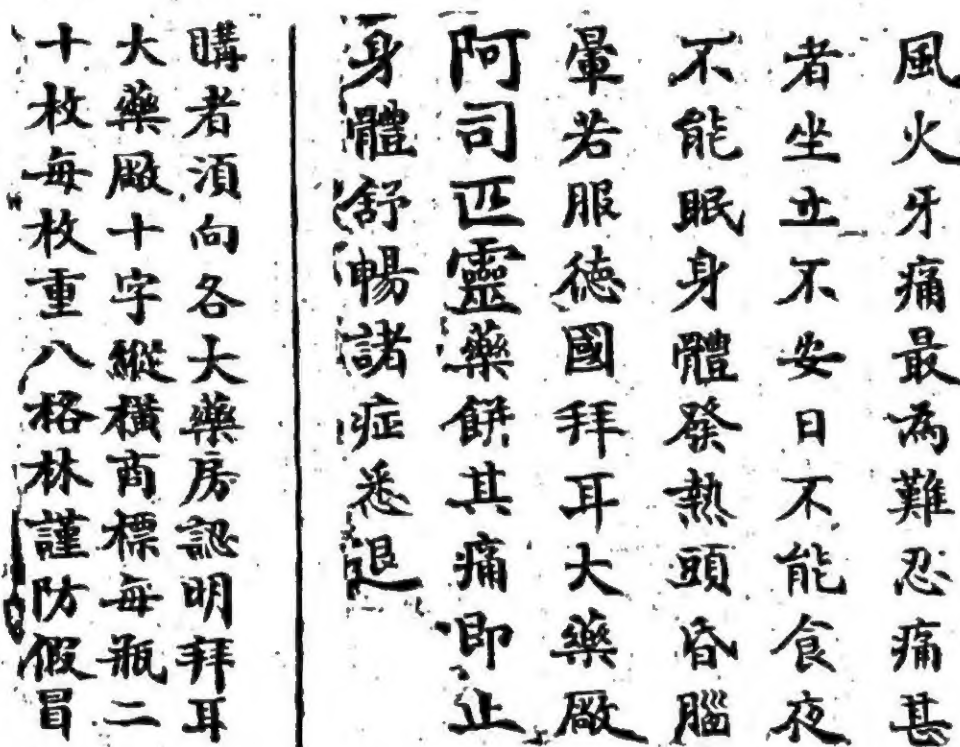 風火牙痛最為難忍痛甚
者坐立不安日不能食夜
不能眠身體發熱頭昏腦
暈若服德國拜耳大藥廠
阿司匹靈藥餅其痛即止
身體舒暢諸症悉退
購者須向各大藥房認明拜耳
大藥廠十字縱橫商標每瓶二
十枚每枚重八格林謹防假冒